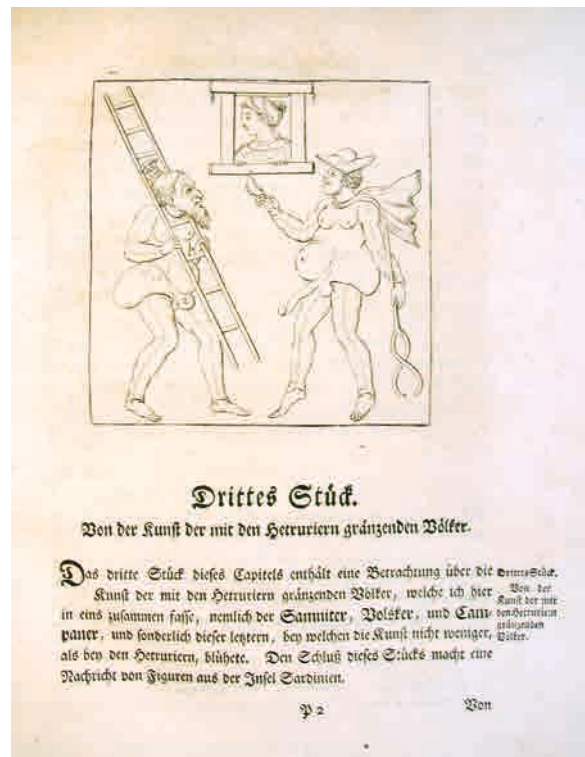 Drittes Stück.
Von der Kunst der mit den Hetruriern gränzenden Völker.
Das dritte Stück dieses Capitels enthält eine Betrachtung über die
Kunst der mit den Hetruriern gränzenden Völker, welche ich hier
in eins zusammen fasse, nemlich der Samniter, Volsker, und Cam-
paner, und sonderlich dieser letztern, bey welchen die Kunst nicht weniger,
als bey den Hetruriern, blühete. Den Schluß dieses Stücks macht eine
Nachricht von Figuren aus der Insel Sardinien.
Drittes Stück.
Von der
Kunst der mit
den Hetruriern
gränzenden
Völker.
P 2
Von